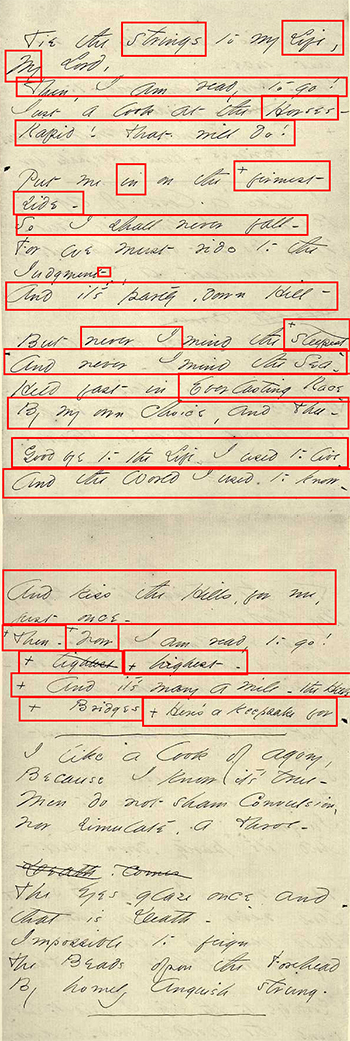 Tie the Strings to my Life,
My Lord,
Then, I am ready to go!
Just a look at the Horses -
Rapid! That will do!
Put me in on the + firmest -
side -
So I shall never fall -
For we must ride to the
Judgment -
And it's partly, down Hill -
But never I mind the + steepest
And never I mind the Sea -
Held fast in Everlasting Race
By my own Choice, and Thee -
Good bye to the Life I used to live,
And the World I used to know -
And kiss the Hills, for me,
just once -
+ Then - + now I am ready to go!
+ tightest + highest -
+ And it's many a mile - the
+ Bridges + Here's a keepsake for
I like a look of Agony,
Because I know it's true -
Men do not sham Convulsion,
Nor simulate, a Throe -
Death, comes
The Eyes glaze once - and
that is Death -
Impossible to feign
The Beads upon the Forehead
By homely Anguish strung.